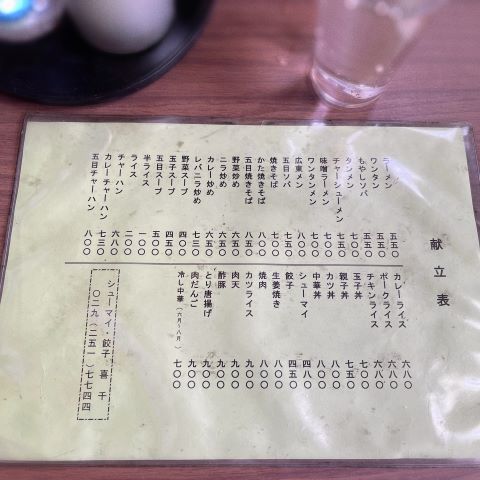 献立表
ラーメン 五五〇
ワンタン 五五〇
もやしソバ
タンメン
チャーシューメン
味噌ラーメン
ワンタンメン
広東メン
五目ソバ
焼きそば
かた焼きそば
五目焼きそば 八五〇
野菜炒め 六五〇
ニラ炒め 六五〇
カレー炒め 六五〇
レバニラ炒め 七三〇
野菜スープ 四五〇
玉子スープ 四五〇
五目スープ 五〇〇
半ライス 一〇〇
ライス 二〇〇
チャーハン 六八〇
カレーチャーハン 七三〇
五目チャーハン 八〇〇
カレーライス 六八〇
ポークライス 六八〇
チキンライス 六八〇
玉子丼
親子丼 七〇〇
カツ丼 八〇〇
中華丼 八〇〇
シューマイ 四八〇
餃子 四五〇
生姜焼き 八〇〇
焼肉 八〇〇
カツライス 九〇〇
肉天 九〇〇
酢豚 九〇〇
とり唐揚げ 九〇〇
肉だんご 九〇〇
冷し中華(六月~八月) 七〇〇
シューマイ・餃子 喜千
〇二九(二五一)七七四四